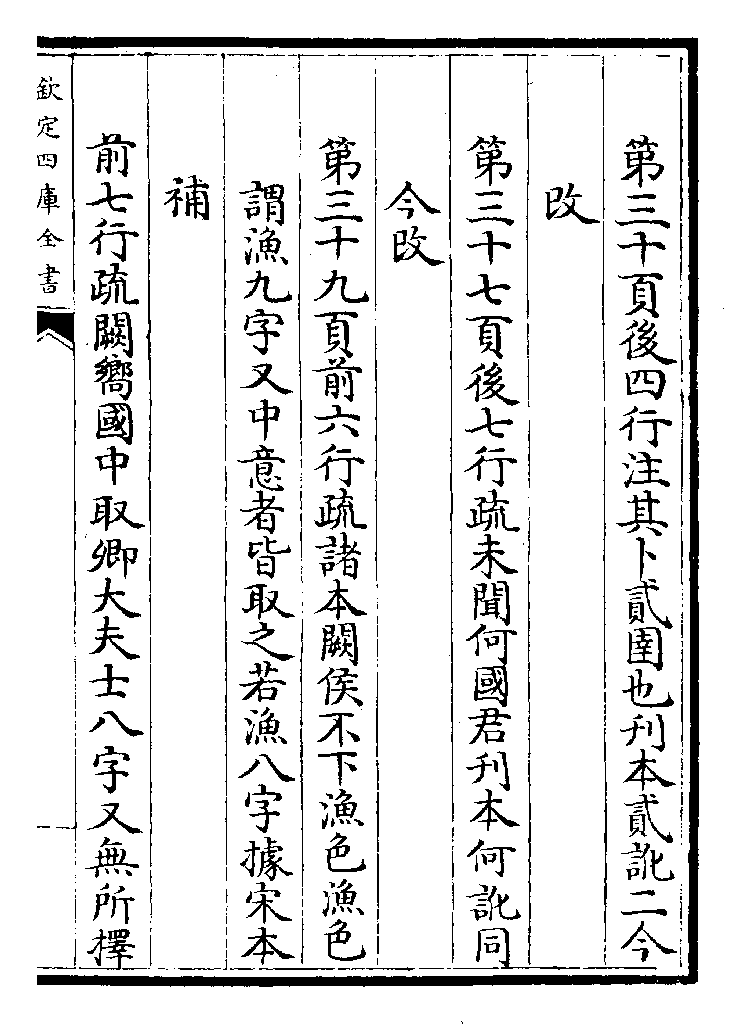 第三十頁後四行注其卜貳圉也刋本貳訛二今
改
第三十七頁後七行疏未聞何國君刋本何訛同
今改
第三十九頁前六行疏諸本闕侯不下漁色漁色
謂漁九字又中意者皆取之若漁八字據宋本
補
前七行疏闕嚮國中取卿大夫士八字又無所擇
欽定四庫全書